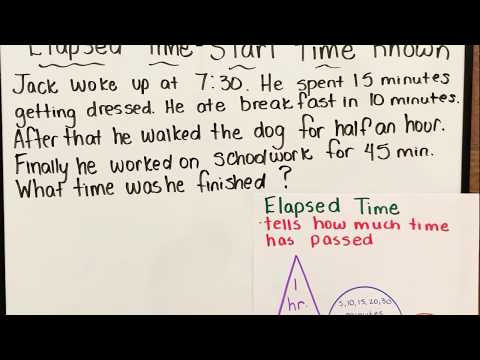 Elapsed Time-Start Time Known
Jack woke up at 7:30. He spent 15 minutes
getting dressed. He ate breakfast in 10 minutes.
After that he walked the dog for half an hour.
Finally he worked on schoolwork for 45 min.
What time was he finished ?
Elapsed Time
tells how much time
has passed
1
hr.
5,10,15,20,30
minutes